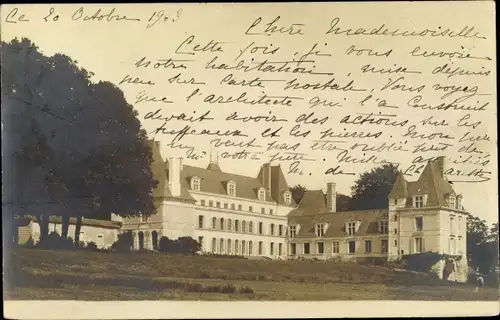 Ce 20 Octobre 1903
Chère Mademoiselle
Cette fois, je vous envoie
notre habitation, mise depuis
peu sur Carte postale, Vous voyez
que l'architecte qui l'a construit
devait avoir des actions sur les
tuffeaux et les pierres. Mon père
ne veut pas être oublié près de
M. votre père. Mille amitiés
M. de